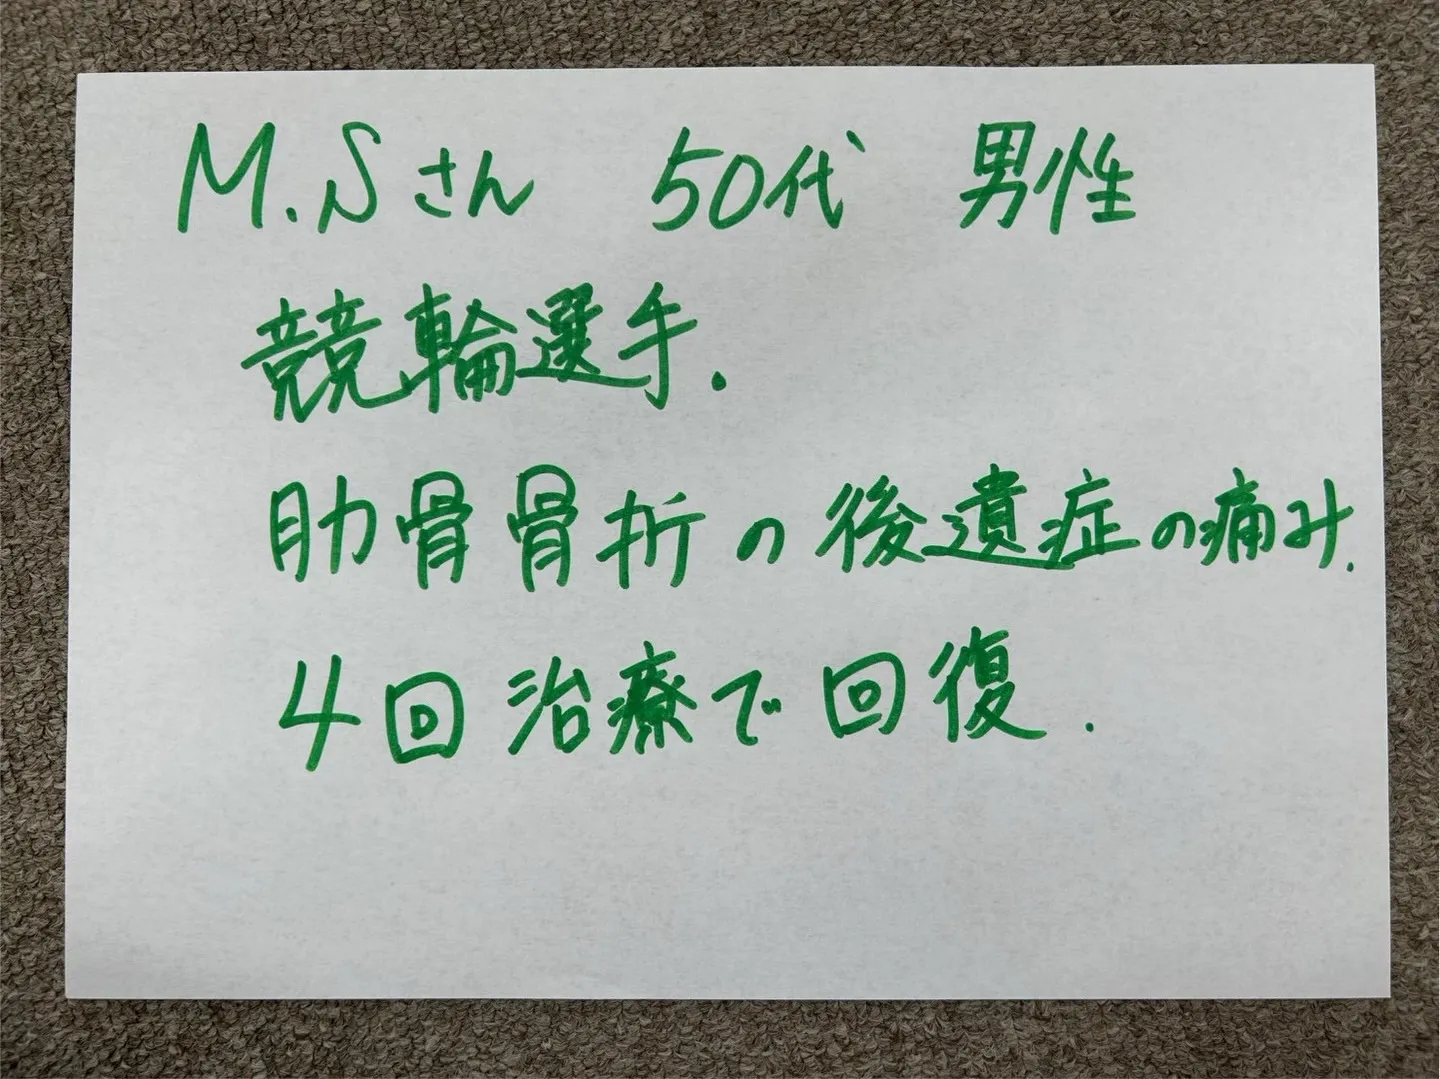 M.Sさん 50代 男性
競輪選手.
肋骨骨折の後遺症の痛み.
4回治療で回復.